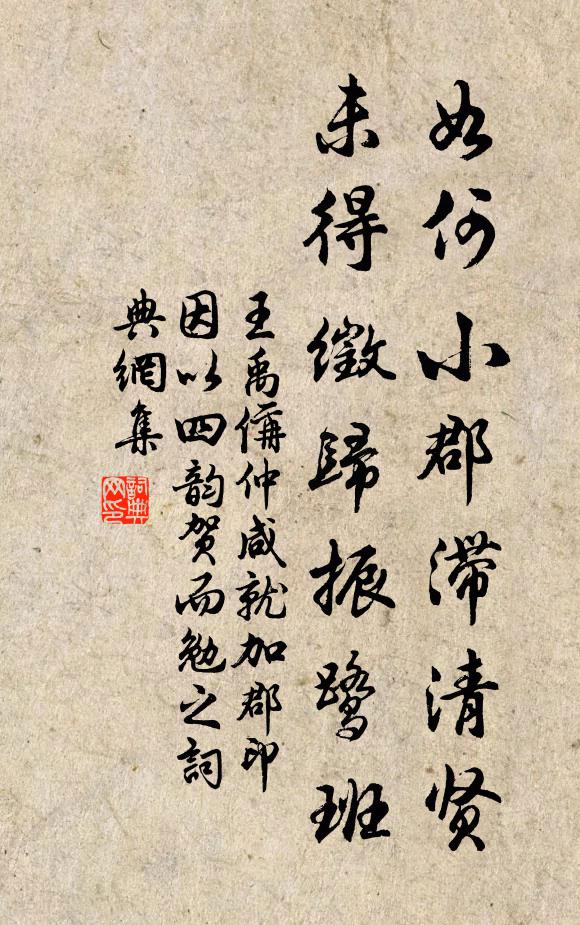 如何小郡滞清贤
未得徵歸振鹭班
王禹偁仲咸就加郡印
因以四韵贺而勉之詞
典網集
詞典网印